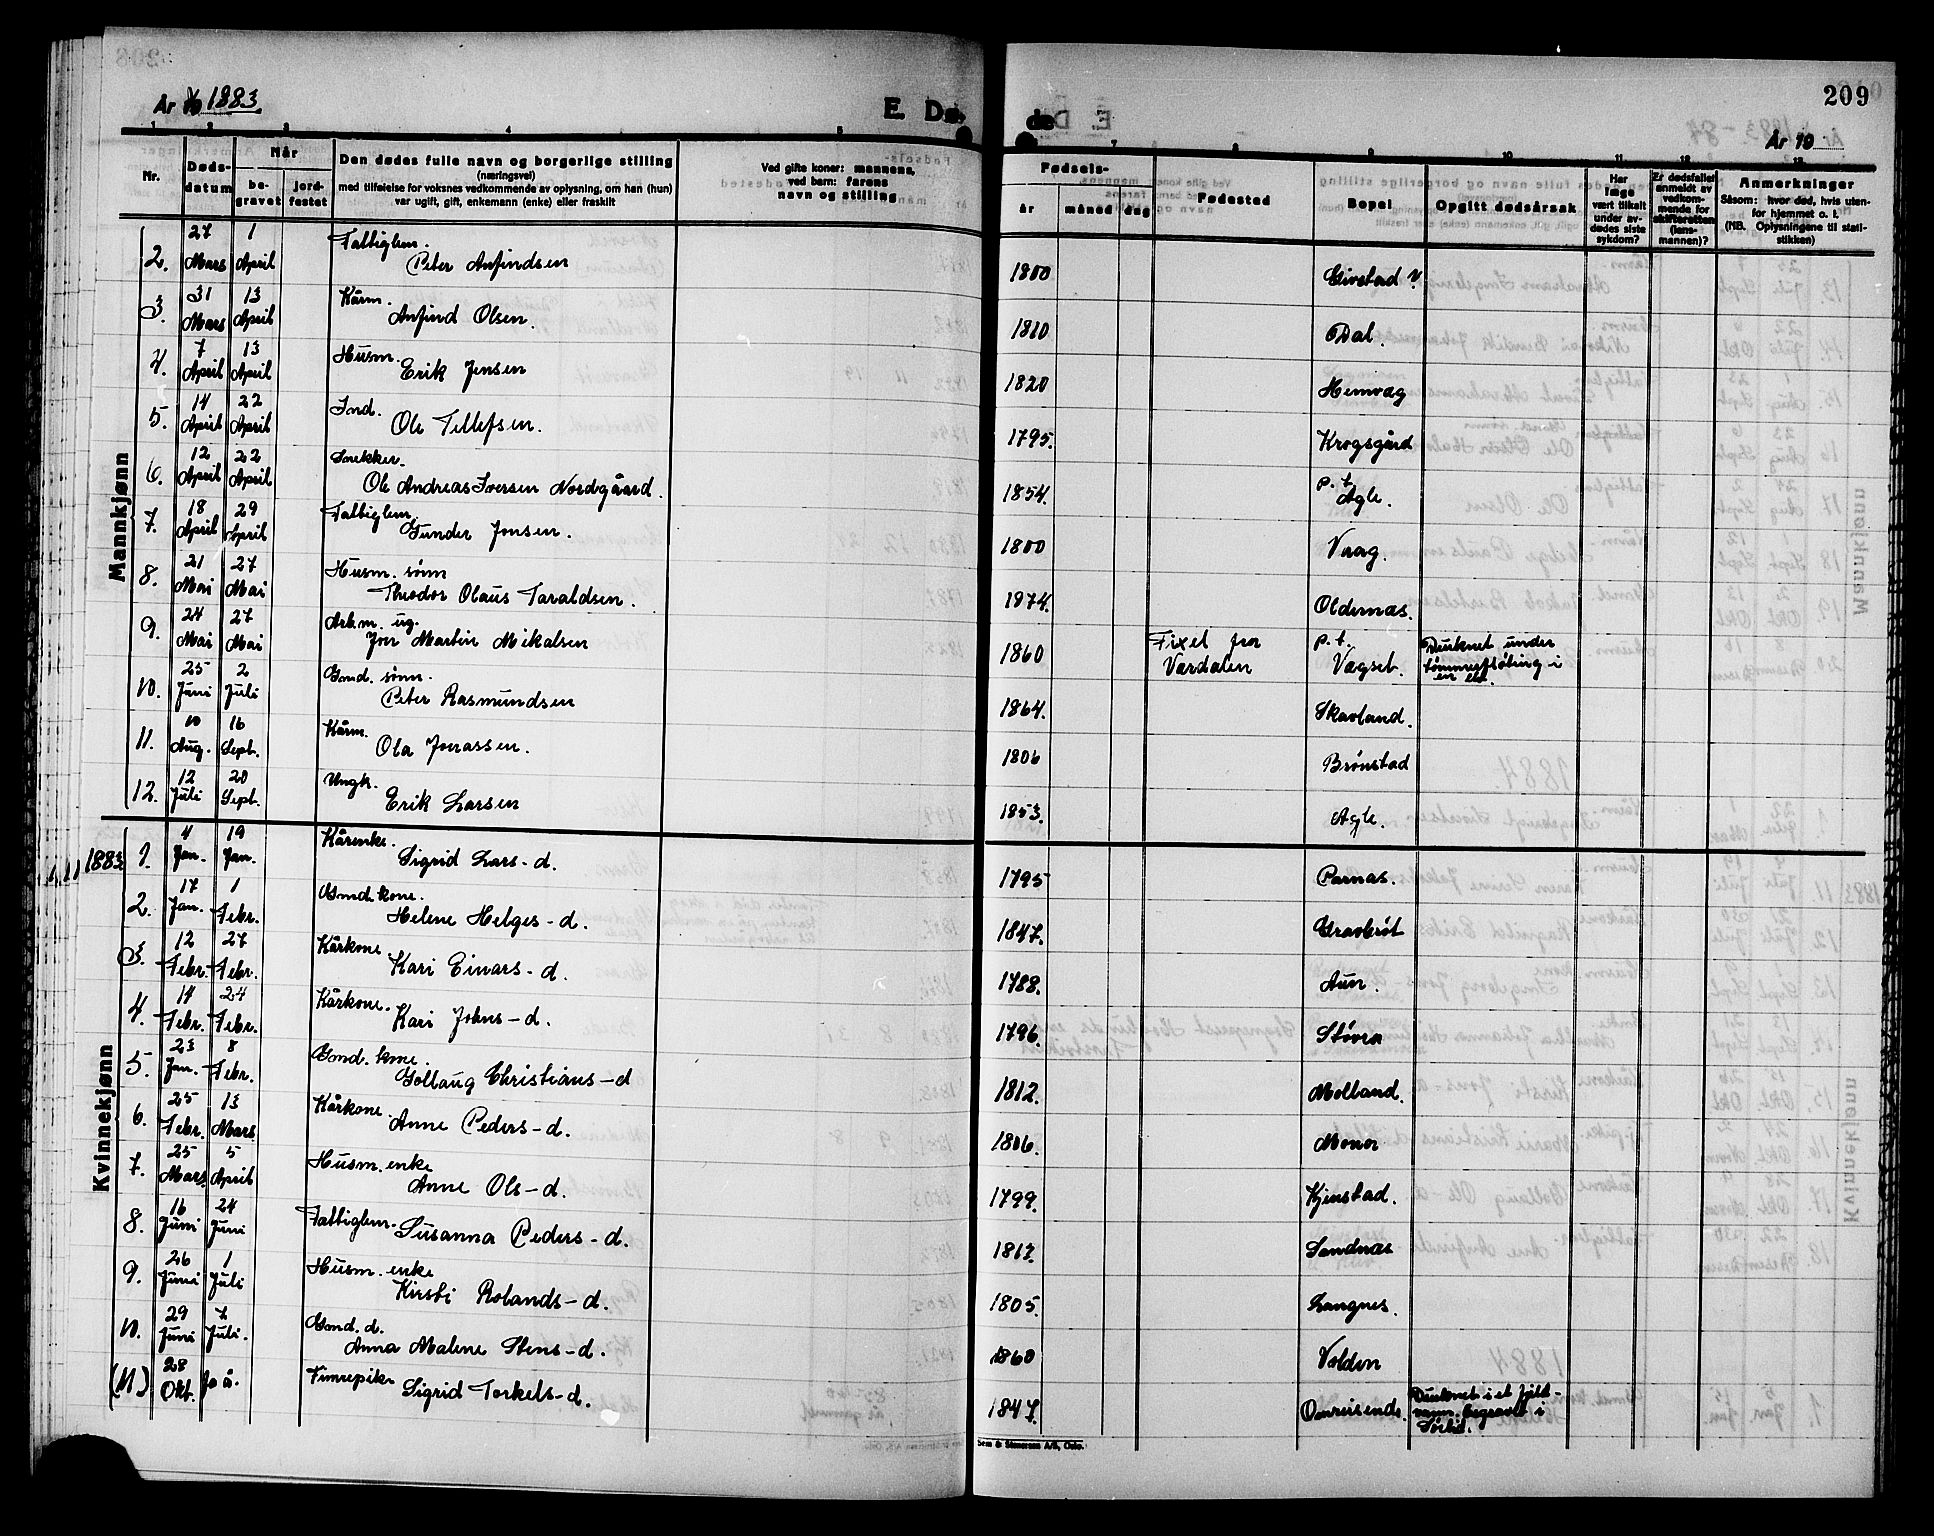 År 1883
E. Døde
209
År 19
1 2 3 4 5
7 8 9 10 11 12 13
Nr.
Døds-
datum
Når
be-
gravet
jord-
festet
Den dødes fulle navn og borgerlige stilling
(næringsvei)
med tilføielse for voksnes vedkommende av oplysning, om han (hun)
var ugift, gift, enkemann (enke) eller fraskilt
Ved gifte koner: mannens,
ved barn: farens
navn og stilling
Fødsels-
år
måned
dag
Fødested
Bopel
Opgitt dødsårsak
Har
læge
vært tilkalt
under av-
dødes siste
sykdom?
Er dødsfallet
anmeldt av
vedkom-
mende for
skifteretten
(lens-
mannen)?
Anmerkninger
Såsom: hvor død, hvis uten-
for hjemmet o. l.
(NB. Oplysningene til stati-
stikken)
Mannkjønn
2. 27 Mars 1 April Fattiglem. Peter Anfindsen 1800 Givstad ?
3. 31 Mars 13 April Kårm. Anfind Olsen. 1810 Dal.
4. 7 April 13 April Husm. Erik Jensen 1820 Hemvag
5. 14 April 22 April Ind. Ole Tellefsen. 1795. Krogsgård
6. 12 April 22 April Snekker. Ole Andreas Iversen Nordgåard. 1854. p. t. Agle.
7. 18 April 29 April Fattiglem. Gunder Jonsen. 1800 Vaag.
8. 21 Mai 27 Mai Husm. sønn Theodor Olaus Taraldsen. 1874. Oldernas.
9. 24 Mai 27 Mai Arb.m. ug. Jon Martin Mikalsen 1860 Fixet fra Værdalen p. t. Vagset. Druknet under tømmerfløting i en elv.
10. 25 Juni 2 Juli Gmd. sønn. Peter Rasmundsen 1864. Skavland.
11. 10 Aug. 16 Sept. Kårm. Ola Jonassen. 1806 Brønstad
12. 12 Juli 20 Sept. Ungk. Erik Larsen 1853. Agle.
Kvinnekjønn
1883 1. 4 Jan. 19 Jan. Kårenke. Sigrid Lars-d. 1795 Parnas.
2. 17 Jan. 1 Febr. Gmd. kone. Helene Helges-d. 1847. Gravbrøt
3. 12 Febr. 27 Febr. Kårkone Kari Einars-d. 1788. Aun.
4. 14 Febr. 24 Febr. Kårkone. Kari Johns-d. 1796. Støvra
5. 23 Jan. 8 Febr. Gmd. kone. Gollaug Christians-d 1812. Molland.
6. 25 Febr. 13 Mars Kårkone. Anne Peders-d. 1806. Mona
7. 25 Mars. 5 April Husm. enke Anne Ols-d. 1799. Kjenstad.
8. 16 Juni 24 Juni Fattiglem. Susanna Peders-d. 1813. Sandnas
9. 26 Juni 1 Juli Husm. enke Kirsti Rolands-d. 1805. Langnes.
10. 29 Juni 7 Juli. Gmd. d. Anna Malene Stens-d. 1860 Volden
(11) 28 Okt. Finnepike Sigrid Torkels-d. 1847. Omreisende. Druknet i et fjell-vann, begravet i Sørli.
Sem & Stenersen A/S, Oslo.